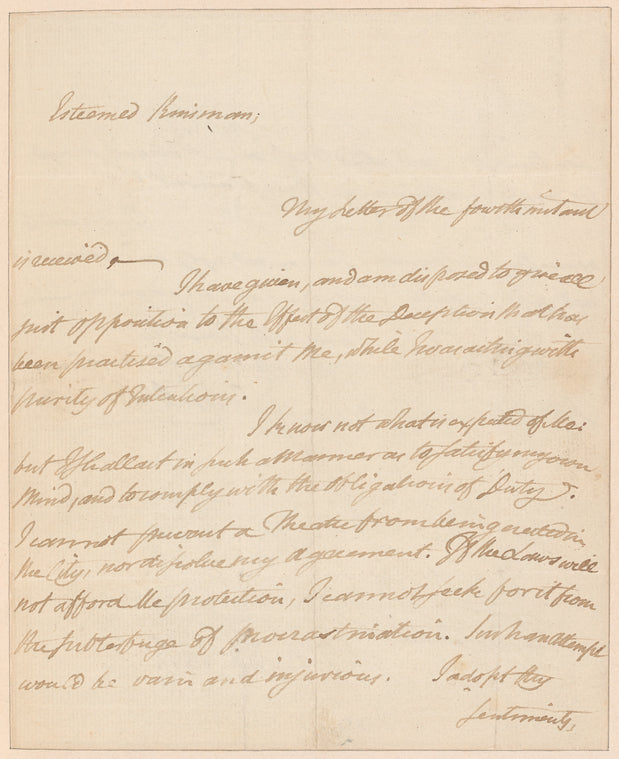 Esteemed Kinsman;
My Letter of the fowrth instant
is received,
I have given, and am disposed to give all
just opposition to the Effect of the Deception that has
been practised against Me, while I was acting with
purity of Intention.
I know not what is expected of Me:
but I shall act in such a Manner as to satisfy my own
Mind, and to comply with the Obligations of Duty.
I cannot prevent a Theatre from being erected in
the City, nor dissolve my Agreement. If the Laws will
not afford Me protection, I cannot seek for it from
the subterfuge of procrastination. Such an attempt
would be vain and injurious. I adopt thy
Sentiments,